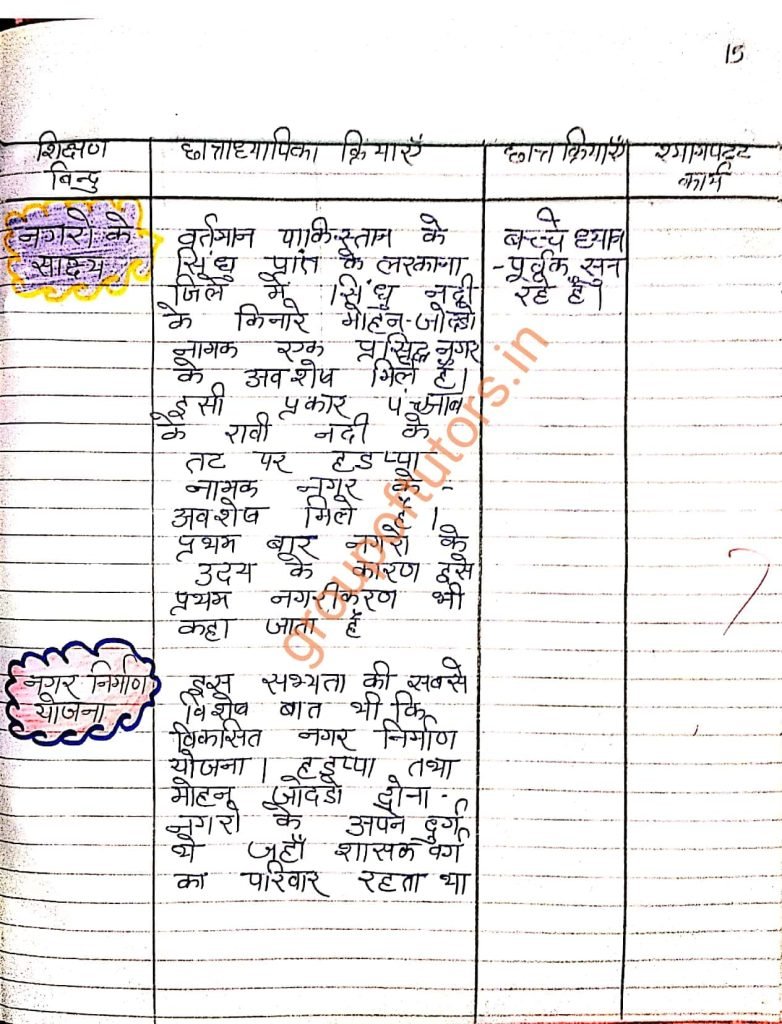 15
शिक्षण बिन्दु
छात्राध्यापिका क्रियाएँ
छात्र क्रियाएँ
श्यामपट्ट कार्य
नगरो के
साक्ष्य
वर्तमान पाकिस्तान के
सिंधु प्रांत के लरकाना
जिले में सिंधु नदी
के किनारे मोहन-जोदडो
नामक एक प्रसिद्ध नगर
के अवशेष मिले है।
इसी प्रकार पंन्जाब
के रावी नदी के
तट पर हडप्पा
नामक नगर के -
अवशेष मिले हैं।
प्रथम बार नगरो के
उदय के कारण इसे
प्रथम नगरीकरण भी
कहा जाता हैं
बच्चे ध्यान
-पूर्वक सुन
रहे हैं।
नगर निर्माण
योजना
इस सभ्यता की सबसे
विशेष बात थी कि
विकसित नगर निर्माण
योजना। हडप्पा तथा
मोहन जोदडो दोना -
नगरो के अपने दुर्ग
थे जहाँ शासक वर्ग
का परिवार रहता था
groupoftutors.in